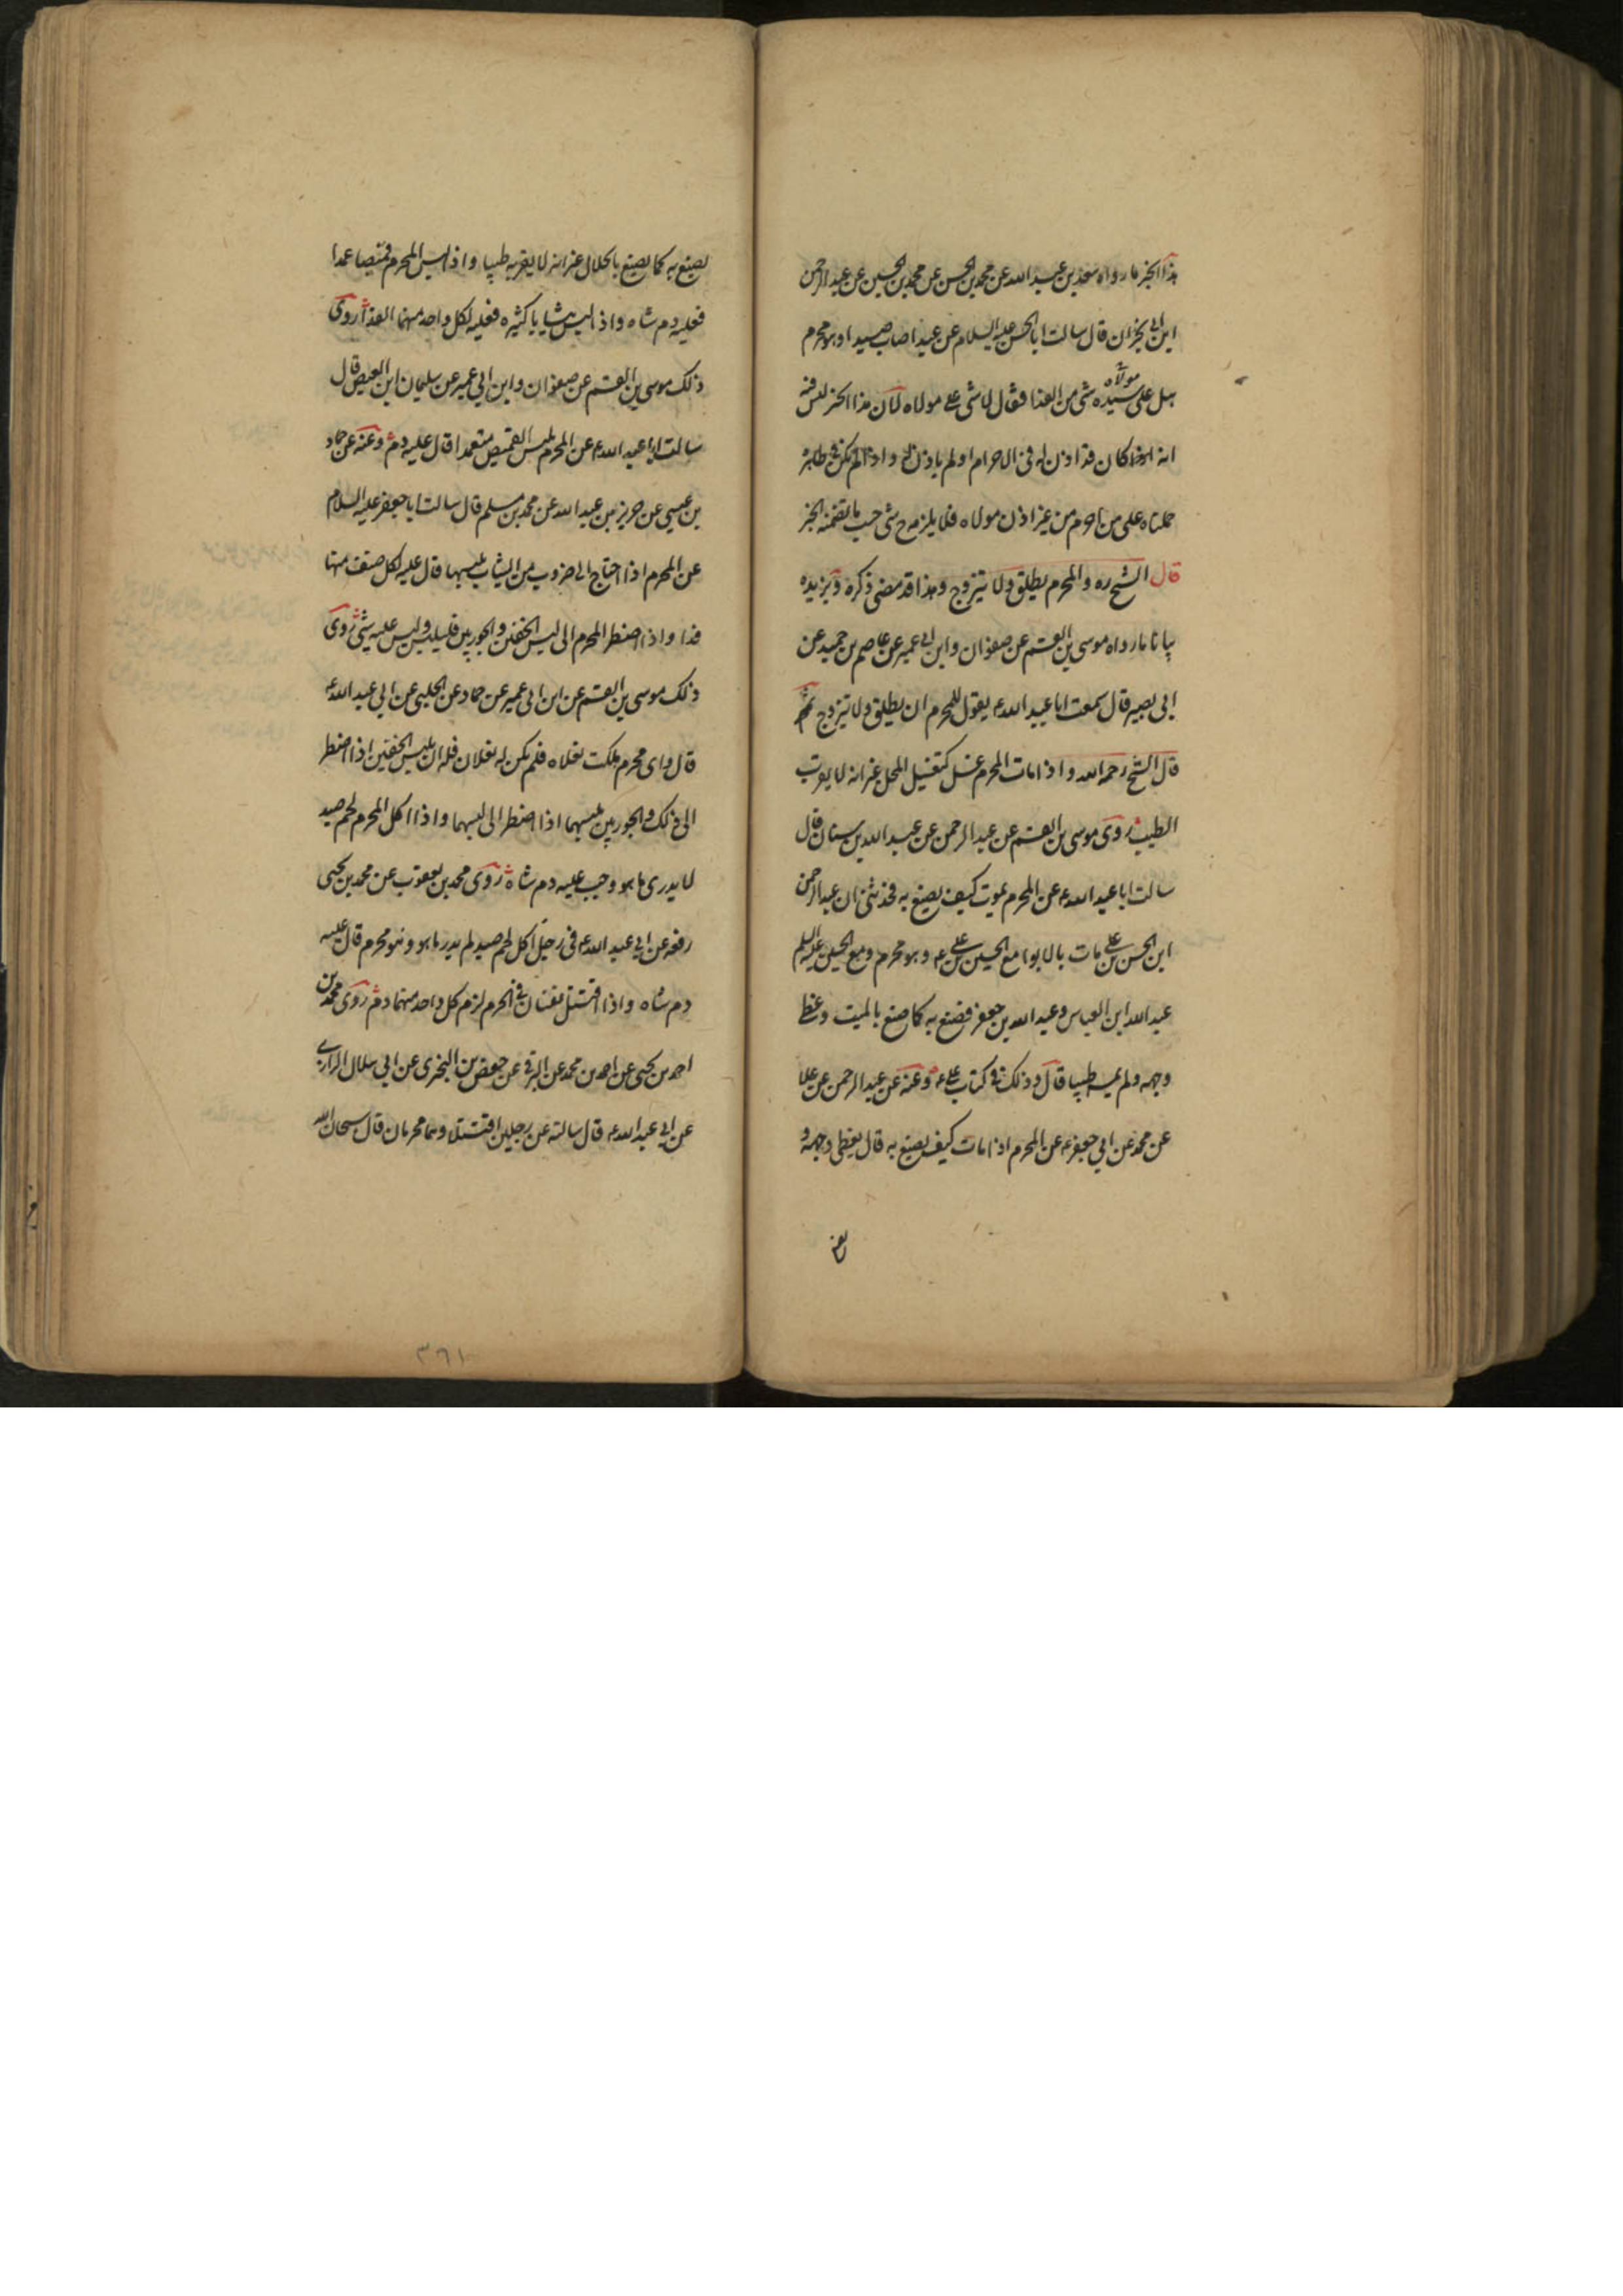 هذا الخبر ما رواه سعد بن عبد الله عن محمد بن الحسن عن محمد بن الحسين عن عبد الرحمن
ابن ابى نجران قال سالت ابا الحسن عليه السلام عن عبد اصاب صيدا وهو محرم
هل على سيده مولاه شئ من الفدا فقال لا شئ على مولاه لان هذا الخبر ليس فيه
انه كان قد اذن له فى الاحرام او لم ياذن له واذا لم يكن فى ظاهره
حملناه على من احرم من غير اذن مولاه فلا يلزمه ح شى حسب ما تضمنه الخبر
قال الشيخ ره والمحرم يطلق ولا يتزوج وهذا قد مضى ذكره ويزيده
بيانا ما رواه موسى بن القسم عن صفوان وابن ابى عمير عن عاصم بن حميد عن
ابى بصير قال سمعت ابا عبد الله ع يقول للمحرم ان يطلق ولا يتزوج ثم
قال الشيخ رحمه الله واذا مات المحرم غسل كتغسيل المحل غير انه لا يقرب
الطيب روى موسى بن القسم عن عبد الرحمن عن عبد الله بن سنان قال
سالت ابا عبد الله ع عن المحرم يموت كيف يصنع به فحدثنى ان عبد الرحمن
ابن الحسن بن على مات بالابوا مع الحسين بن على ع وهو محرم ومع الحسين عليه السلم
عبد الله ابن العباس وعبد الله بن جعفر فصنع به كما صنع بالميت وغطى
وجهه ولم يمسه طيبا قال وذلك فى كتاب على ع وعنه عن عبد الرحمن عن علا
عن محمد عن ابى جعفر ع عن المحرم اذا مات كيف يصنع به قال يغطى وجهه و
يصنع به كما يصنع بالحلال غير انه لا يقربه طيبا واذا لبس المحرم قميصا عمدا
فعليه دم شاه واذا لبس ثيابا كثيره فعليه لكل واحد منهما الفدا روى
ذلك موسى بن القسم عن صفوان وابن ابى عمير عن سليمان ابن العيص قال
سالت ابا عبد الله ع عن المحرم يلبس القميص متعمدا قال عليه دم وعنه عن حماد
بن عيسى عن حريز بن عبد الله عن محمد بن مسلم قال سالت ابا جعفر عليه السلام
عن المحرم اذا احتاج الى ضروب من الثياب يلبسها قال عليه لكل صنف منها
فدا واذا اضطر المحرم الى لبس الخفين والجوربين فليلبس وليس عليه شئ روى
ذلك موسى بن القسم عن ابن ابى عمير عن حماد عن الحلبى عن ابى عبد الله ع
قال واى محرم هلكت نعلاه فلم يكن له نعلان فله ان يلبس الخفين اذا اضطر
الى ذلك والجوربين يلبسهما اذا اضطر الى لبسهما واذا اكل المحرم لحم صيد
لا يدرى ما هو وجب عليه دم شاه روى محمد بن يعقوب عن محمد بن يحيى
رفعه عن ابى عبد الله ع فى رجل اكل لحم صيد لم يدر ما هو وهو محرم قال عليه
دم شاه واذا اقتتل نفسان فى الحرم لزم كل واحد منهما دم روى محمد بن
احمد بن يحيى عن احمد بن محمد عن البرقى عن حفص بن البخترى عن ابى هلال الرازى
عن ابى عبد الله ع قال سالته عن رجلين اقتتلا وهما محرمان قال سبحان الله
٣٦١